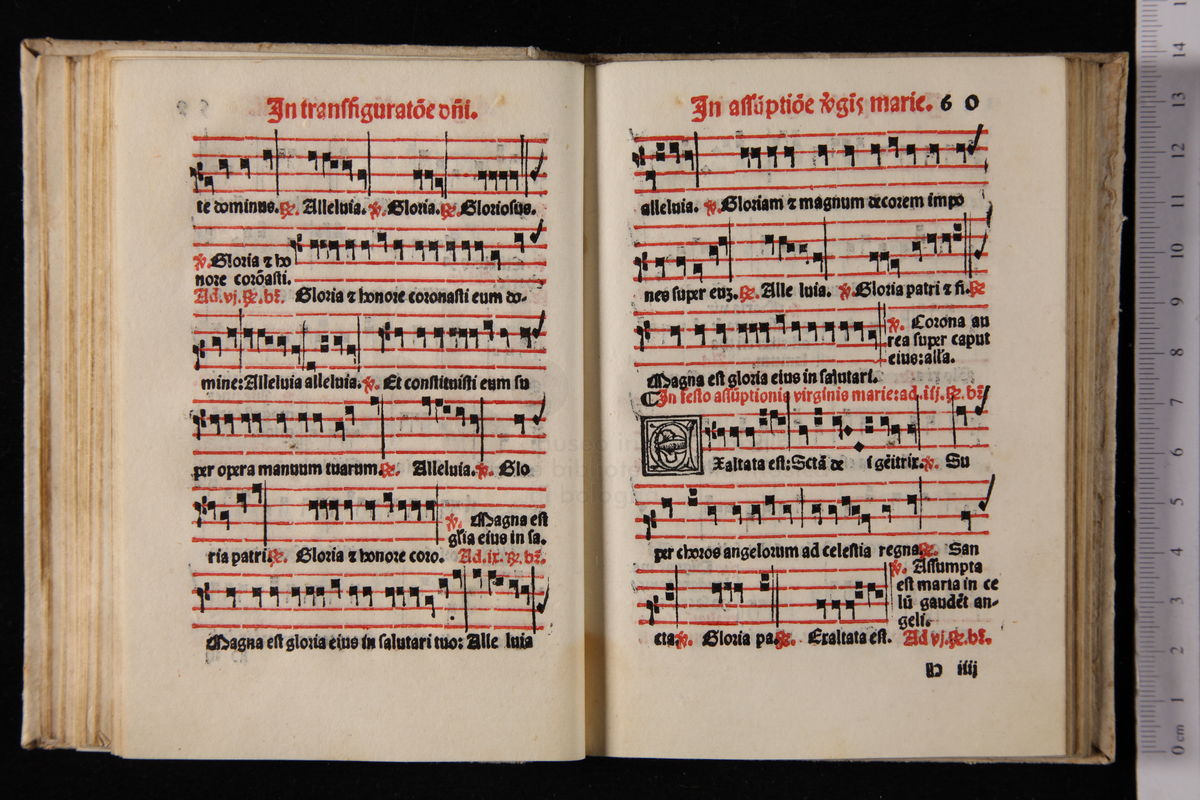 In transfiguratōe dn̄i.
te dominus. ℟. Alleluia. ℣. Gloria. ℟. Gloriosus.
℣. Gloria ⁊ ho
nore corōasti.
Ad. vj. ℟. br̄. Gloria ⁊ honore coronasti eum do-
mine: Alleluia alleluia. ℣. Et constituisti eum su
per opera manuum tuarum. ℟. Alleluia. ℣. Glo
℣. Magna est
gl̄ia eius in sa.
ria patri. ℟. Gloria ⁊ honore coro. Ad. ix. ℟. br̄.
Magna est gloria eius in salutari tuo: Alle luia
In assūptiōe v̄gis marie. 6 0
alleluia. ℣. Gloriam ⁊ magnum decorem impo
nes super euꝫ. ℟. Alle luia. ℣. Gloria patri ⁊ fi. ℟
℣. Corona au
rea super caput
eius: all'a.
Magna est gloria eius in salutari.
In festo assūptionis virginis marie: ad. iij. ℟. br̄
Exaltata est: Sctā de i gēitrix. ℣. Su
per choros angelorum ad celestia regna. ℟. San
℣. Assumpta
est maria in ce
lū gaudēt an-
geli.
cta. ℣. Gloria pa. ℟. Exaltata est. Ad vj. ℟. br̄.
h iiij
0 cm 1 2 3 4 5 6 7 8 9 10 11 12 13 14